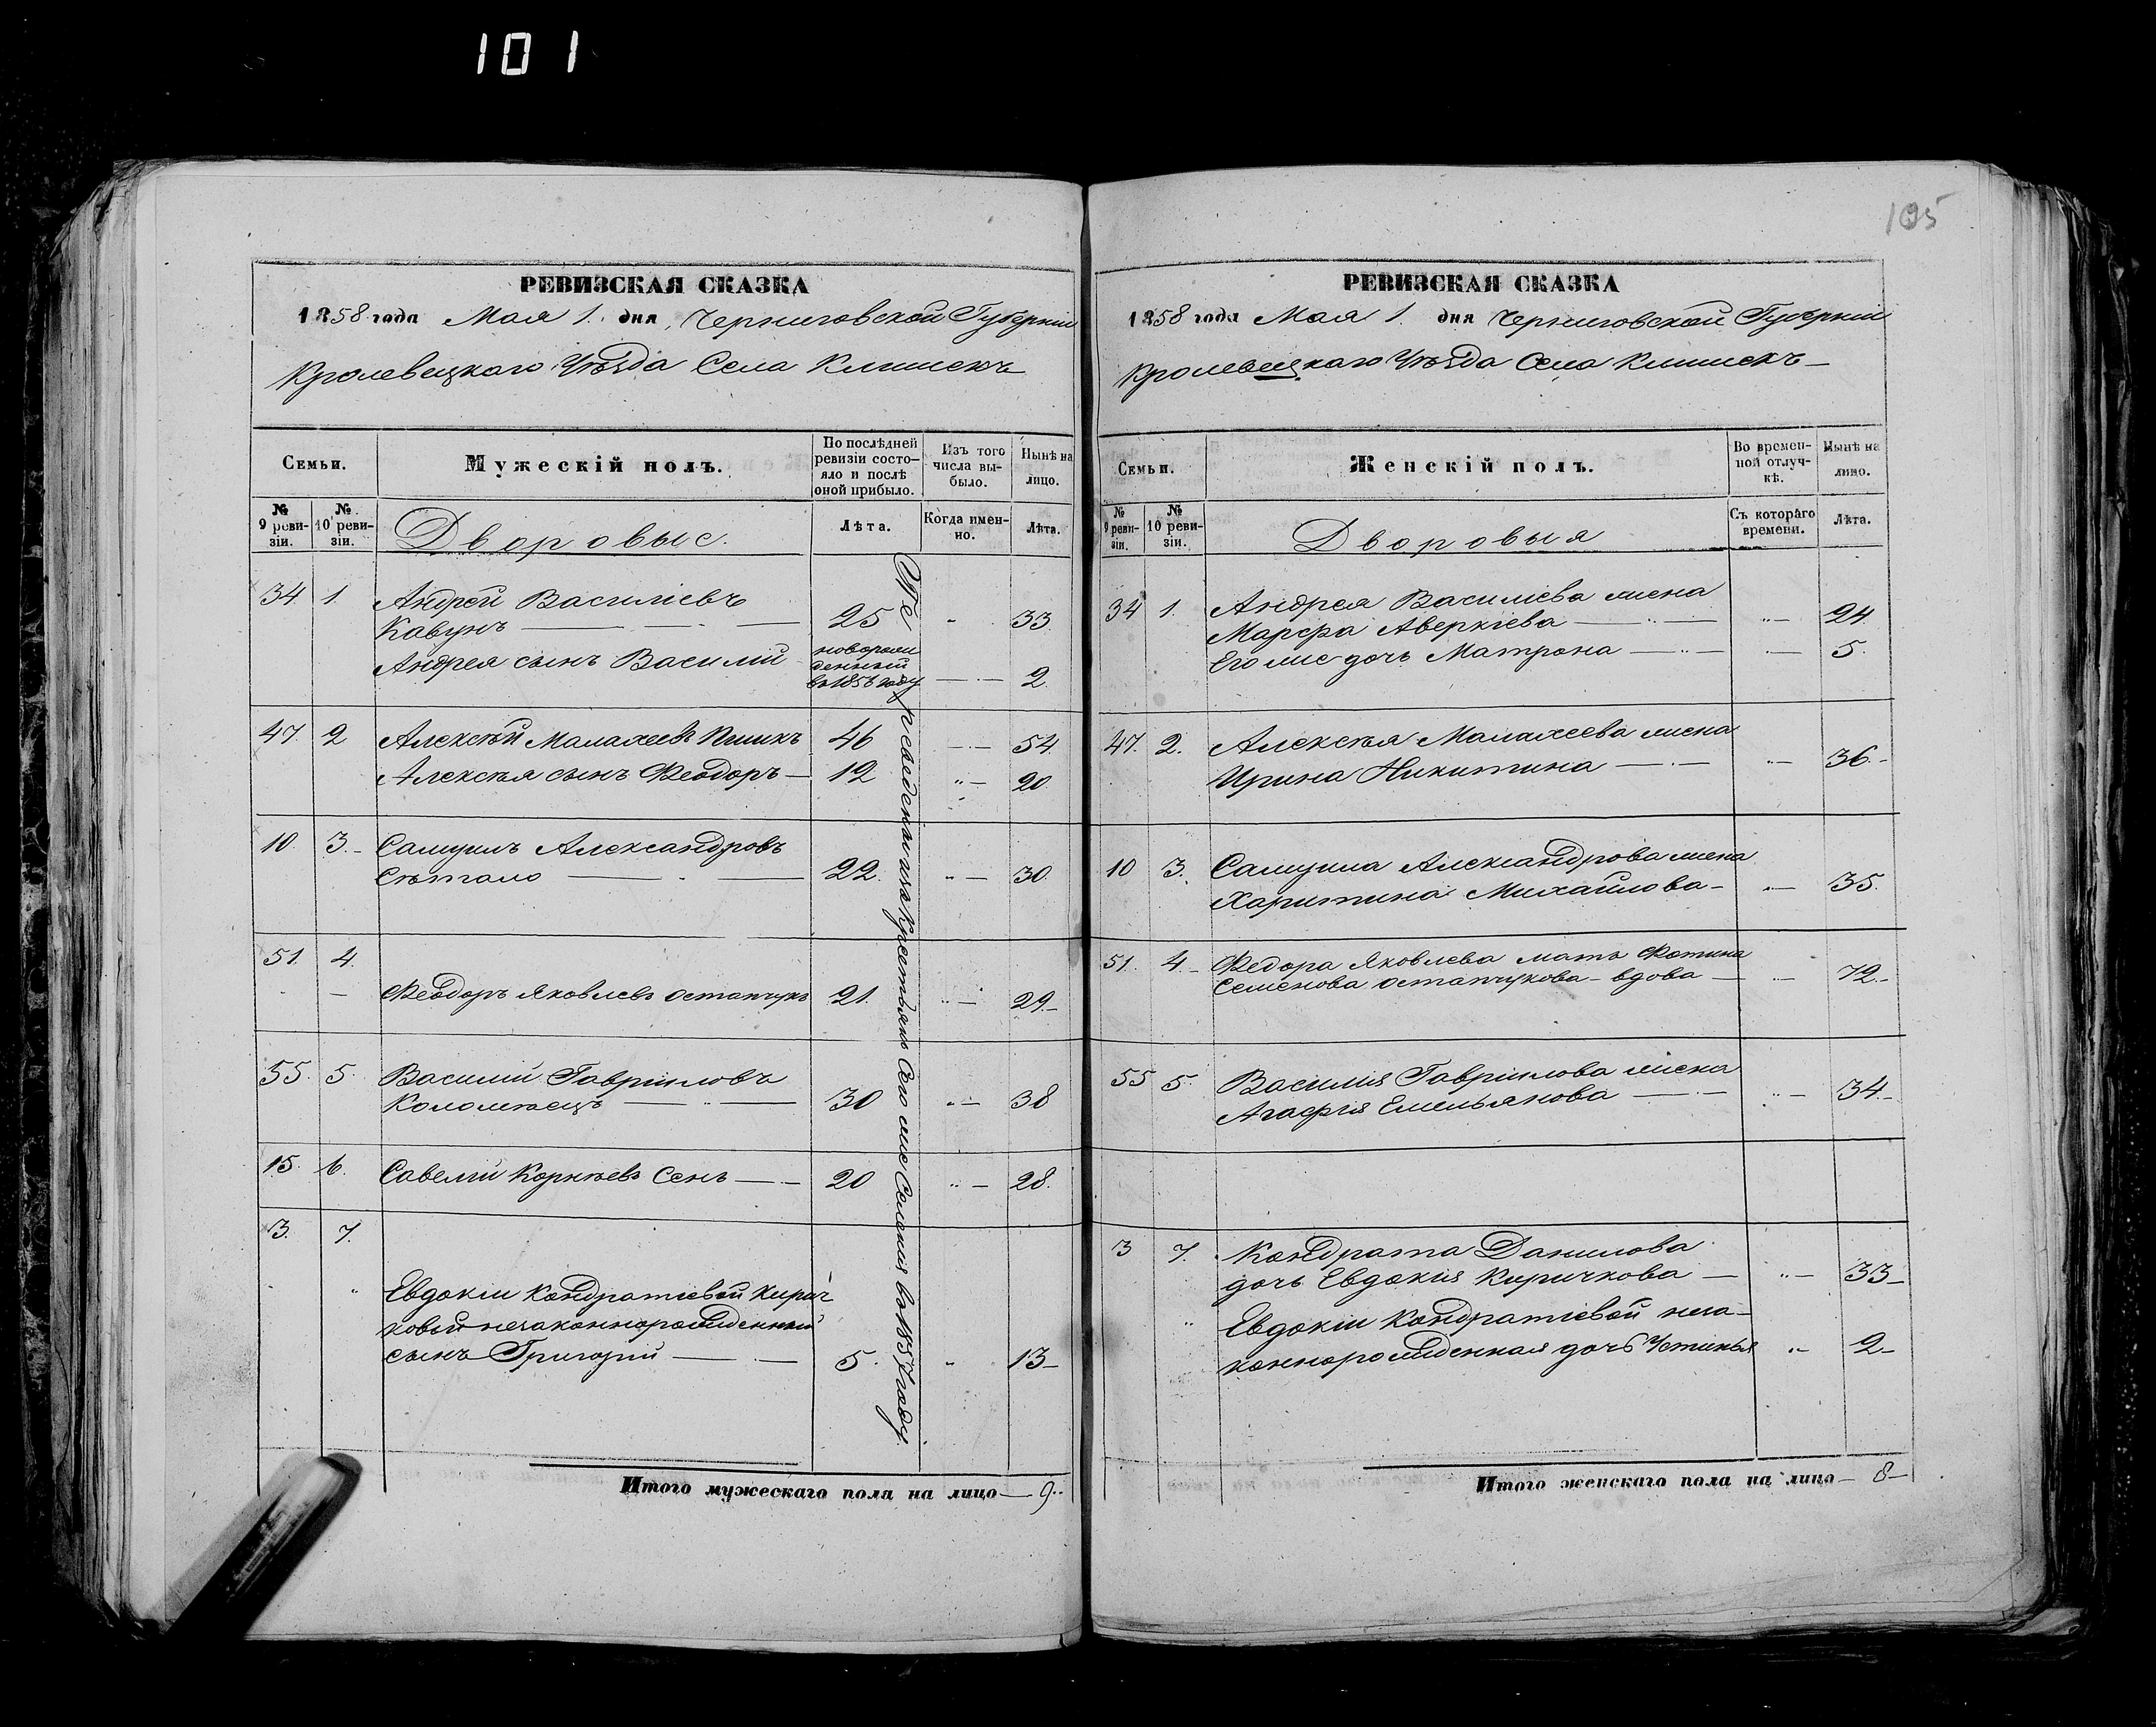 101
105
РЕВИЗСКАЯ СКАЗКА
1858 года Мая 1. дня, Черниговской Губерніи
Кролевецкаго Уѣзда Села Клишекъ
Семьи.
Мужескій полъ.
По послѣдней ревизіи состояло и послѣ оной прибыло.
Изъ того числа выбыло.
Нынѣ на лицо.
№ 9 ревизіи.
№ 10 ревизіи.
Дворовые.
Лѣта.
Когда именно.
Лѣта.
34. 1. Андрей Василіевъ
Кавунъ — 25 — 33
Андрея сынъ Василій новорожденный в 1856 году — 2.
47. 2 Алексѣй Малахеевъ 46 — 54.
Алексѣя сынъ Феодоръ — 12 — 20.
10. 3. Самуилъ Александровъ
Сѣтало — 22. — 30.
51. 4.
Феодоръ Яковлевъ Остапчукъ 21. — 29.
55. 5. Василій Гавриловъ
Коломѣецъ — 30 — 38
15. 6. Савелій Корнѣевъ Сенъ — 20 — 28.
3. 7.
Евдокіи Кондратіевой Кирич
ковой незаконнорожденный
сынъ Григорій — 5. — 13
Переведены изъ Крестьянъ Сего же Селенія въ 1857 году
Итого мужескаго пола на лицо — 9.
РЕВИЗСКАЯ СКАЗКА
1858 года Мая 1. дня Черниговской Губерніи
Кролевецкаго Уѣзда Села Клишекъ
Семьи.
Женскій полъ.
Во временной отлучкѣ.
Нынѣ на лицо.
№ 9 ревизіи.
№ 10 ревизіи.
Дворовыя
Съ котораго времени.
Лѣта.
34 1. Андрея Василіева жена
Марфа Аверкіева — 24
Его же дочь Матрона — 5.
47. 2. Алексѣя Малахеева жена
Ирина Никитина — 36.
10 3. Самуила Александрова жена
Харитина Михайлова — 35.
51. 4. Федора Яковлева мать Фотина
Семенова Остапчукова — вдова — 72.
55 5. Василія Гаврилова жена
Агафія Емельянова — 34.
3 7. Кондрата Данилова
дочь Евдокія Киричкова — 33
Евдокіи Кондратіевой неза-
коннорожденная дочь Устинья — 2
Итого женскаго пола на лицо — 8